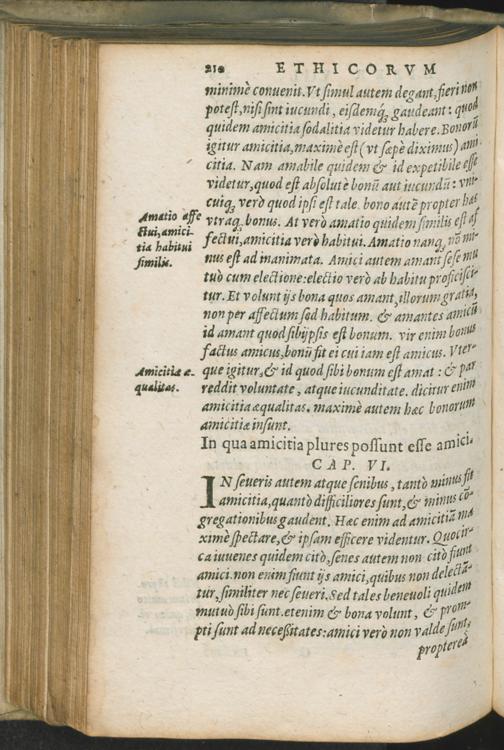 210 ETHICORVM
minimè convenit. Vt simul autem degant, fieri non
potest, nisi sint iucundi, eisdemq́; gaudeant: quod
quidem amicitia sodalitia videtur habere. Bonorũ
igitur amicitia, maximè est (vt sæpè diximus) ami
citia. Nam amabile quidem & id expetibile esse
videtur, quod est absolutè bonũ aut iucundũ: vni-
cuiq; verò quod ipsi est tale. bono autẽ propter hæc
vtraq; bonus. At verò amatio quidem similis est af
fectui, amicitia verò habitui. Amatio nanq; nõ mi-
nus est ad inanimata. Amici autem amant sese mu
tuò cum electione: electio verò ab habitu proficisci-
tur. Et volunt ijs bona quos amant, illorum gratia,
non per affectum sed habitum. & amantes amicũ
id amant quod sibijpsis est bonum. vir enim bonus
factus amicus, bonũ fit ei cui iam est amicus. Vter-
que igitur, & id quod sibi bonum est amat: & par
reddit voluntate, atque iucunditate. dicitur enim
amicitia æqualitas. maximè autem hæc bonorum
amicitiæ insunt.
Amatio affe
ctui, amici-
tia habitui
similis.
Amicitiæ æ-
qualitas.
In qua amicitia plures possunt esse amici.
CAP. VI.
IN severis autem atque senibus, tantò minus fit
amicitia, quantò difficiliores sunt, & minus cõ-
gregationibus gaudent. Hæc enim ad amicitiã ma
ximè spectare, & ipsam efficere videntur. Quocir-
ca iuvenes quidem citò, senes autem non citò fiunt
amici. non enim fiunt ijs amici, quibus non delectã-
tur, similiter nec severi. Sed tales benevoli quidem
mutuò sibi sunt. etenim & bona volunt, & prom-
pti sunt ad necessitates: amici verò non valde sunt,
propterea